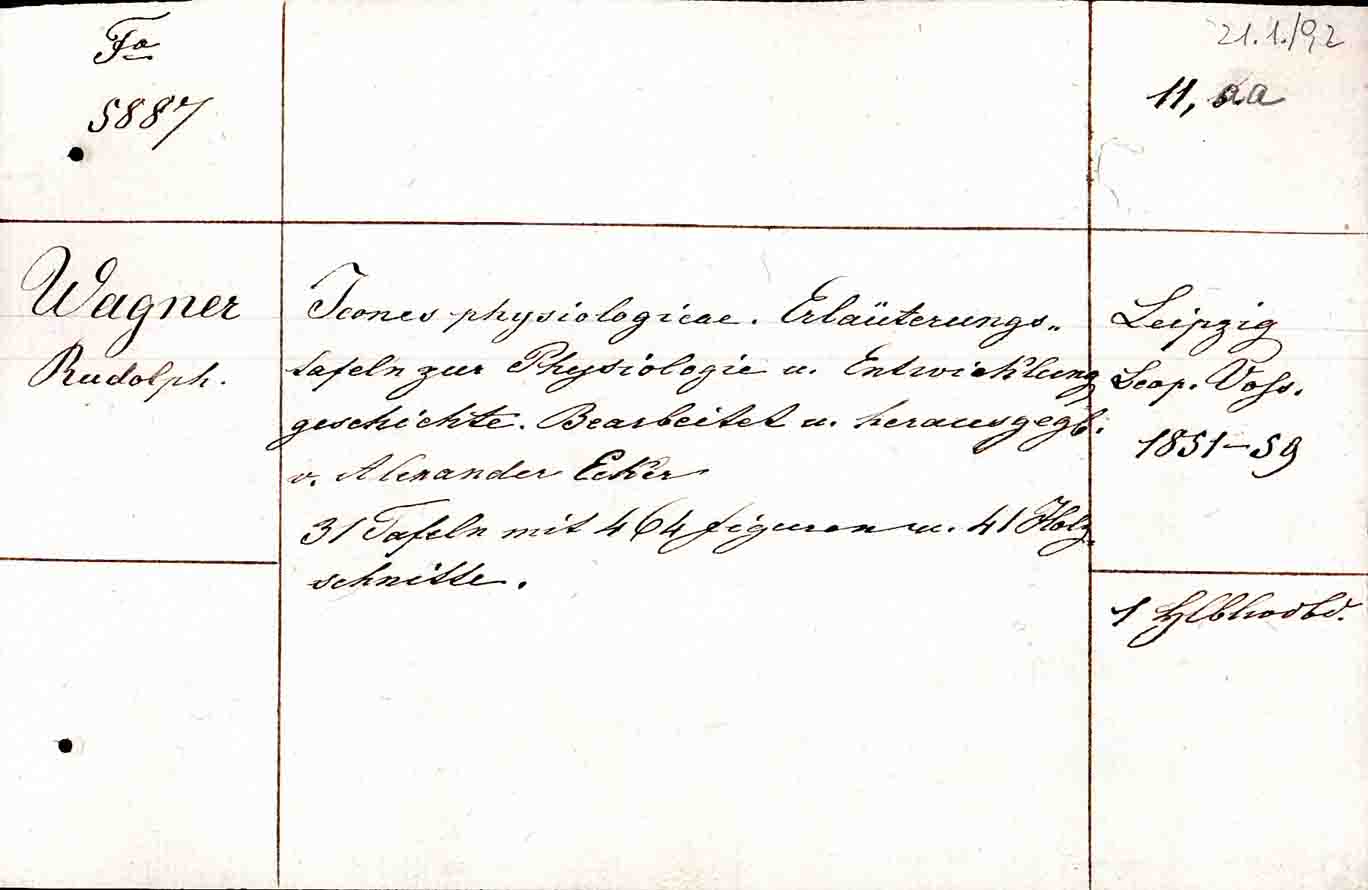 Fa
5887
21.1./92
11, aa
Wagner
Rudolph.
Icones physiologicae. Erläuterungs„
tafeln zur Physiologie u. Entwicklung
geschichte. Bearbeitet u. herausgegb.
v. Alexander Ecker
31 Tafeln mit 464 figuren u. 41 Holz„
schnitte.
Leipzig
Leop. Voss.
1851–59
1 Hlblwdbd.